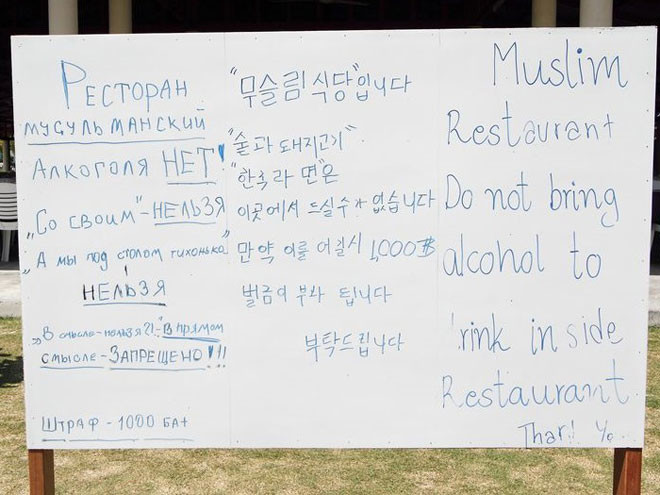 Ресторан
мусульманский
Алкоголя НЕТ!
„Со своим" - НЕЛЬЗЯ
„А мы под столом тихонько"
НЕЛЬЗЯ
„В смысле - нельзя?!" - В прямом
смысле - ЗАПРЕЩЕНО!!!
Штраф - 1000 бат
"무슬림 식당"입니다
"술과 돼지고기"
"한츄라 면"은
이곳에서 드실수가 없습니다
만약 이를 어길시 1,000฿
벌금이 부과 됩니다
부탁드립니다
Muslim
Restaurant
Do not bring
alcohol to
rink inside
Restaurant